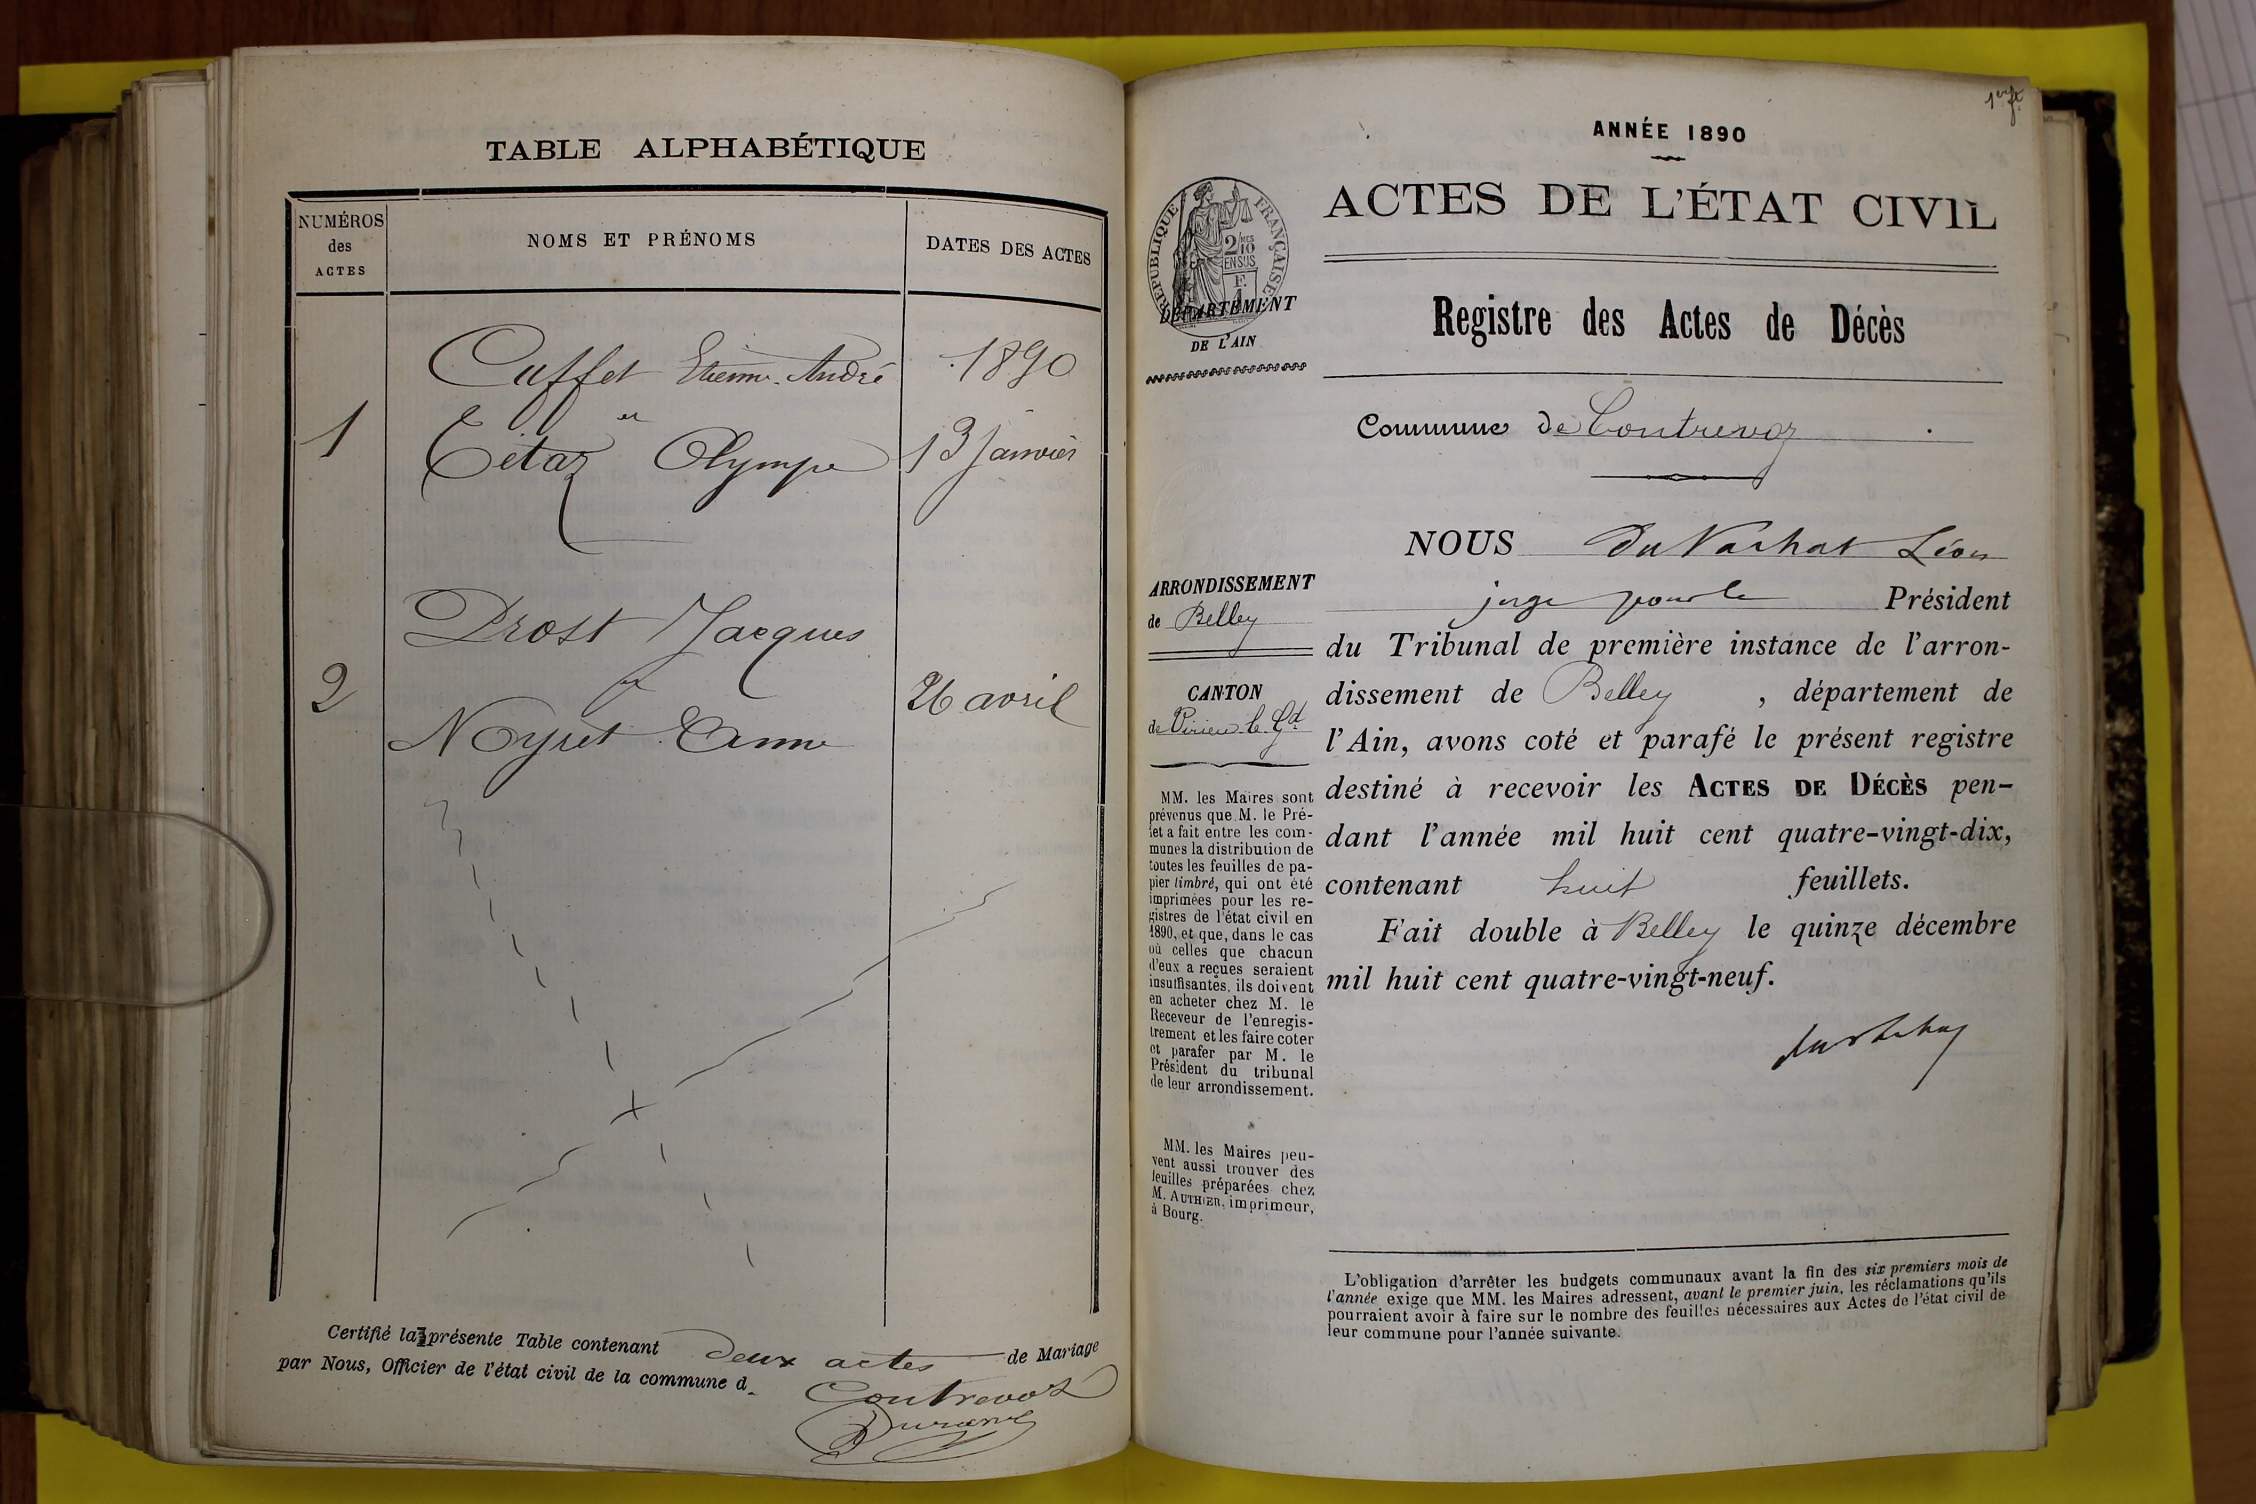 TABLE ALPHABÉTIQUE
NUMÉROS
des
ACTES
NOMS ET PRÉNOMS
DATES DES ACTES
Cuffet Etienne André 1890
et
1 Tétaz Olympe 13 Janvier
Drost Jacques
et
2 26 avril
Noyret Anne
Certifié la présente Table contenant deux actes de Mariage
par Nous, Officier de l'état civil de la commune d
Contrevoz
Durand
1er ft
ANNÉE 1890
ACTES DE L'ÉTAT CIVIL
RÉPUBLIQUE FRANÇAISE
2/10 EN SUS
DÉPARTEMENT
DE L'AIN
Registre des Actes de Décès
Commune de Contrevoz
ARRONDISSEMENT
de Belley
CANTON
de Virieu le Gd
MM. les Maires sont
prévenus que M. le Pré-
fet a fait entre les com-
munes la distribution de
toutes les feuilles de pa-
pier timbré, qui ont été
imprimées pour les re-
gistres de l'état civil en
1890, et que, dans le cas
où celles que chacun
d'eux a reçues seraient
insuffisantes, ils doivent
en acheter chez M. le
Receveur de l'enregis-
trement et les faire coter
et parafer par M. le
Président du tribunal
de leur arrondissement.
MM. les Maires peu-
vent aussi trouver des
feuilles préparées chez
M. AUTHIER, imprimeur,
à Bourg.
NOUS du Vachat Léon
juge pour le Président
du Tribunal de première instance de l'arron-
dissement de Belley , département de
l'Ain, avons coté et parafé le présent registre
destiné à recevoir les ACTES DE DÉCÈS pen-
dant l'année mil huit cent quatre-vingt-dix,
contenant huit feuillets.
Fait double à Belley le quinze décembre
mil huit cent quatre-vingt-neuf.
L'obligation d'arrêter les budgets communaux avant la fin des six premiers mois de
l'année exige que MM. les Maires adressent, avant le premier juin, les réclamations qu'ils
pourraient avoir à faire sur le nombre des feuilles nécessaires aux Actes de l'état civil de
leur commune pour l'année suivante.